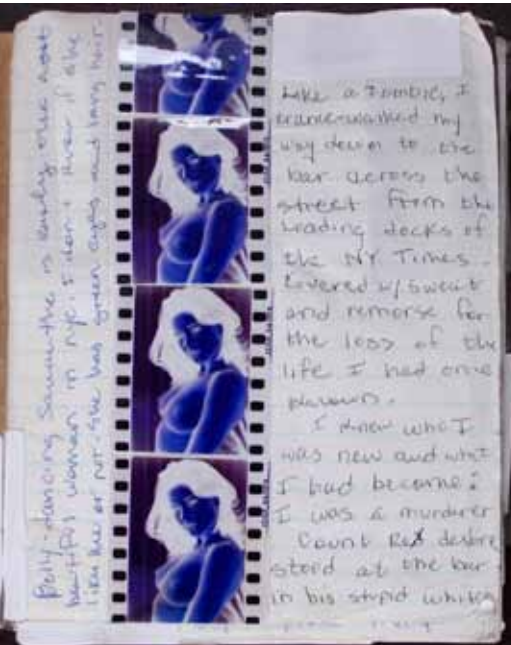 Belly-dancing Samantha is easily the most
beautiful woman in nyc. I don't know if she
likes me or not. She has green eyes and long hair.
Like a zombie, I
trance-walked my
way down to the
bar across the
street from the
loading docks of
the NY Times.
Covered w/ sweat
and remorse for
the loss of the
life I had once
known.
I knew who I
was now and what
I had become:
I was a murderer
Count Rex
stood at the bar
in his stupid white